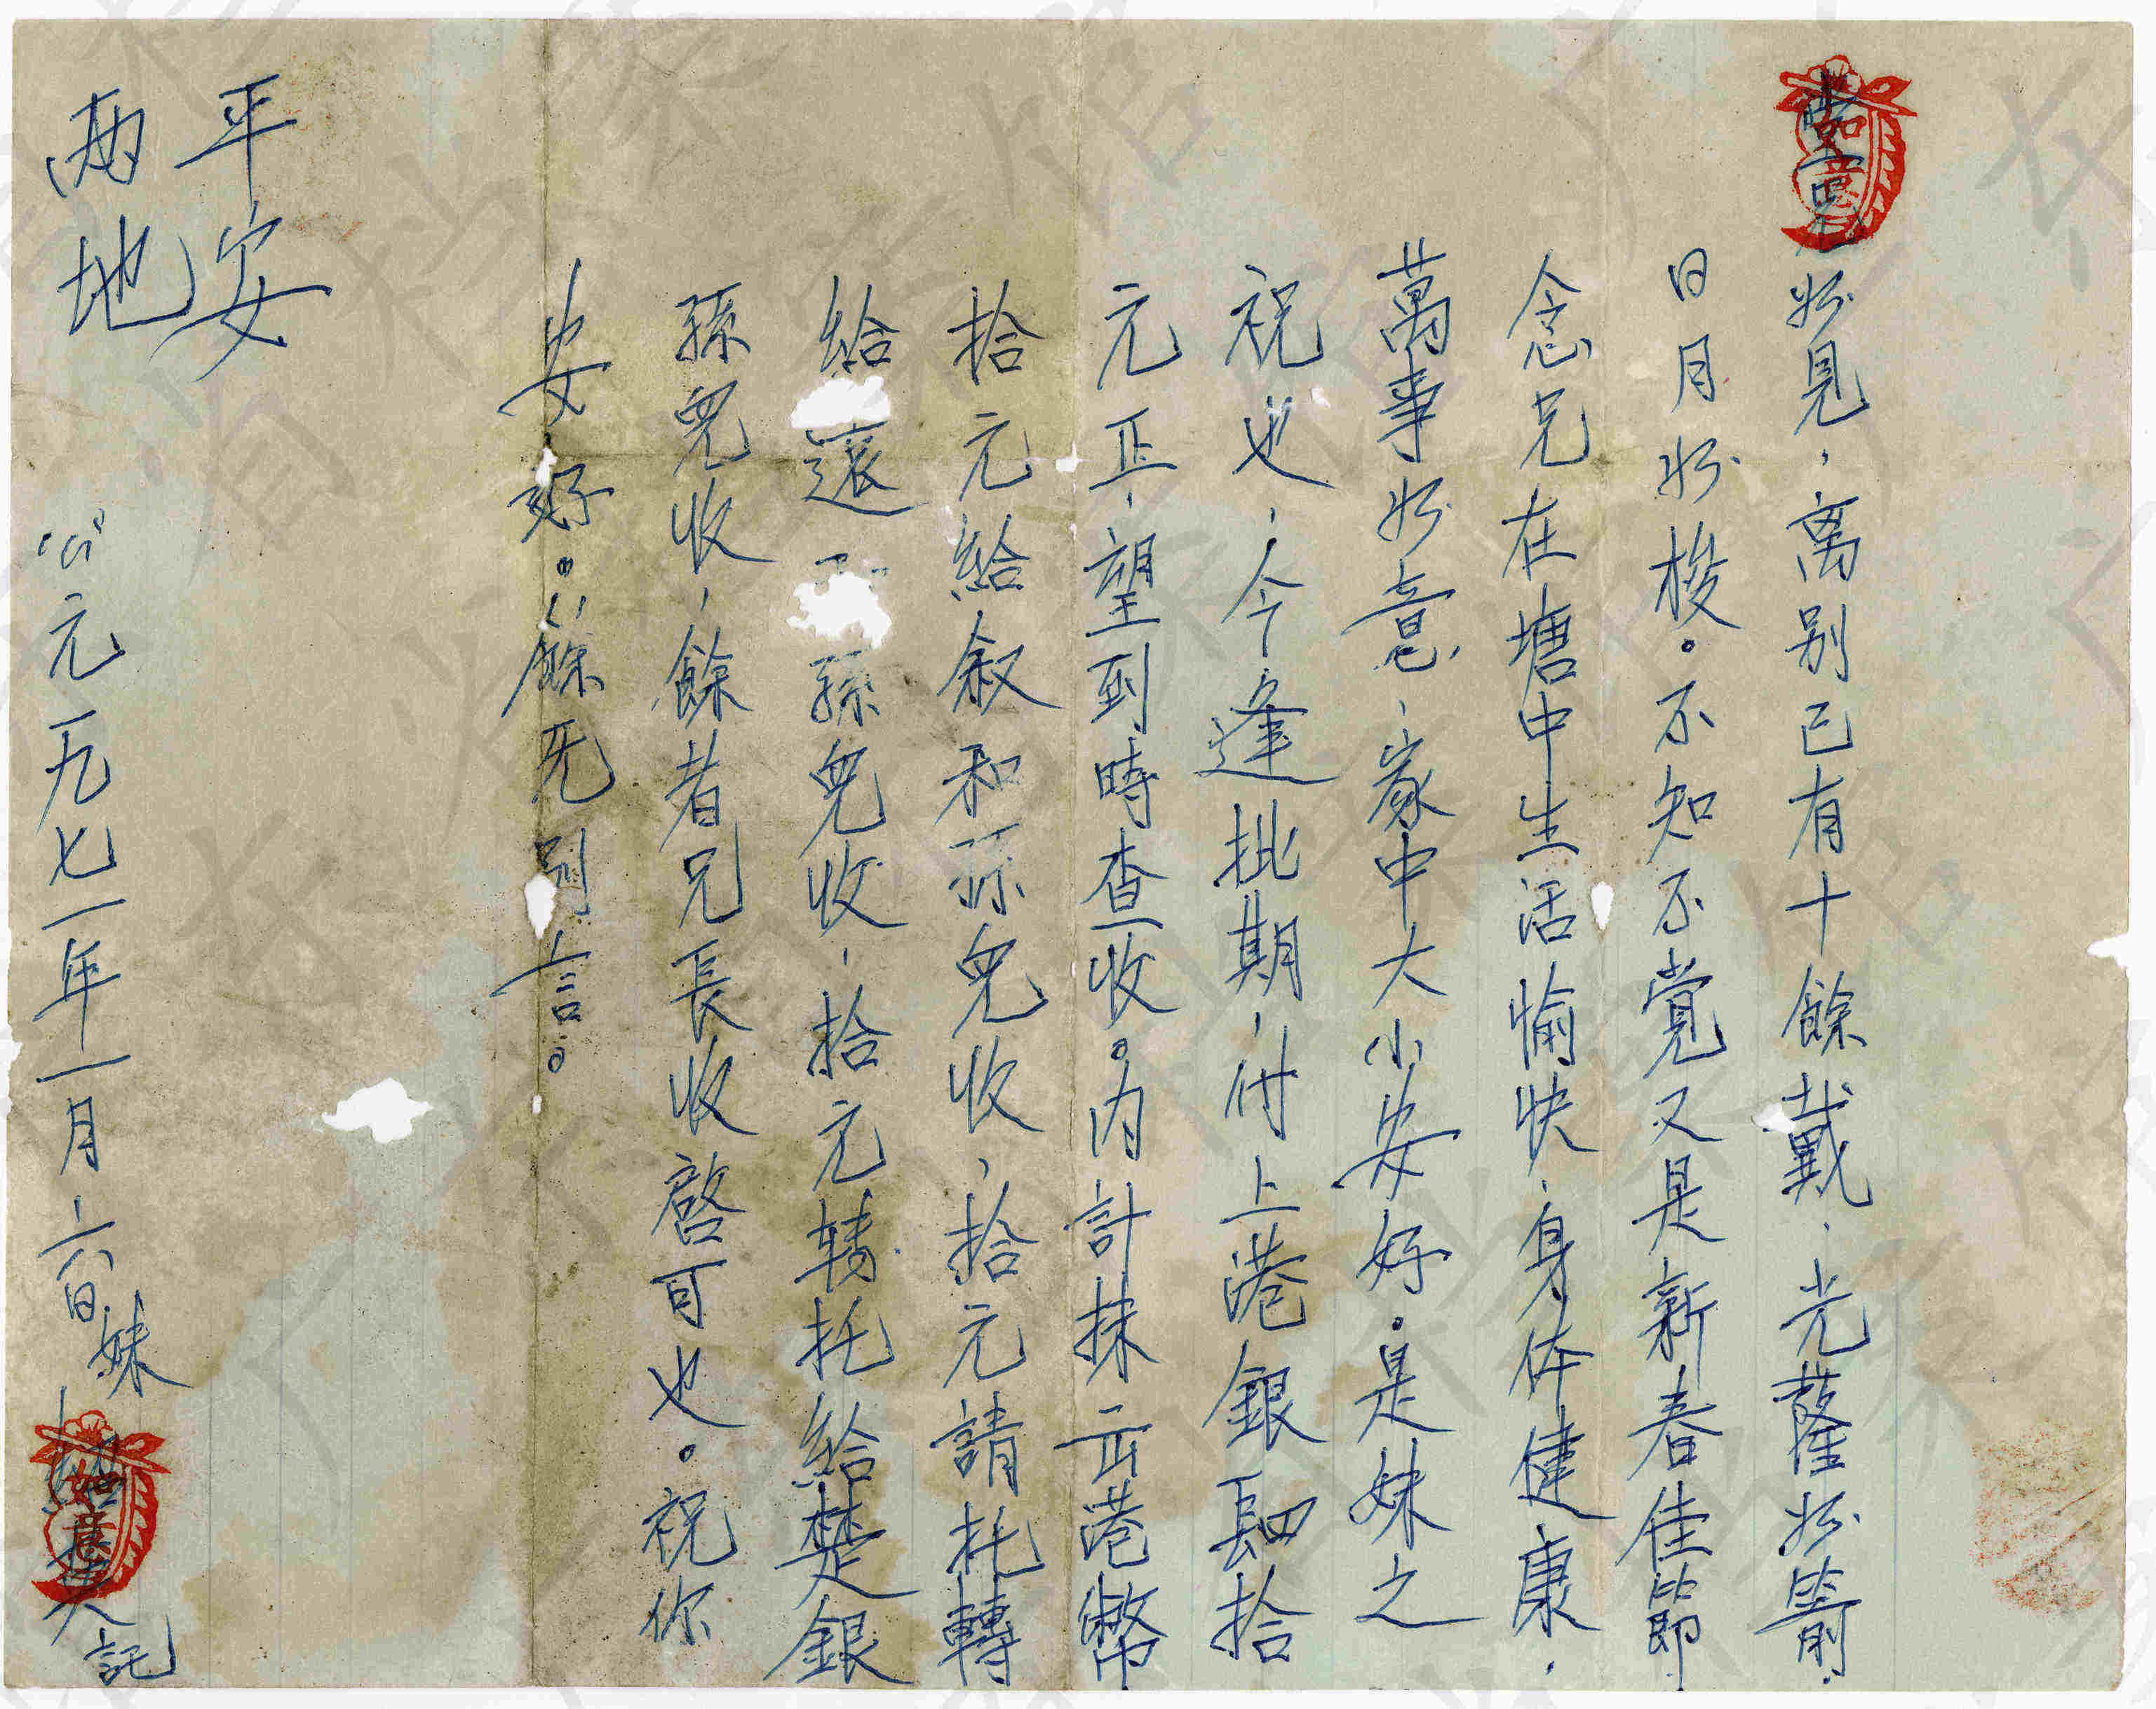 如見，离别已有十餘戴，光蔭如箭，
日月如梭。不知不覺又是新春佳節，
念兄在塘中生活愉快，身体健康，
萬事如意，家中大小安好。是妹之
祝也，今逢批期，付上港銀肆拾
元正，望到時查收。内計抹出港幣
拾元給叙和孫兒收，拾元請托轉
給遠 孫兒收，拾元轉托給楚銀
孫兒收，餘者兄長收啓可也。祝你
安好。餘无别言。
平安
兩地
公元一九七一年一月六日妹 託